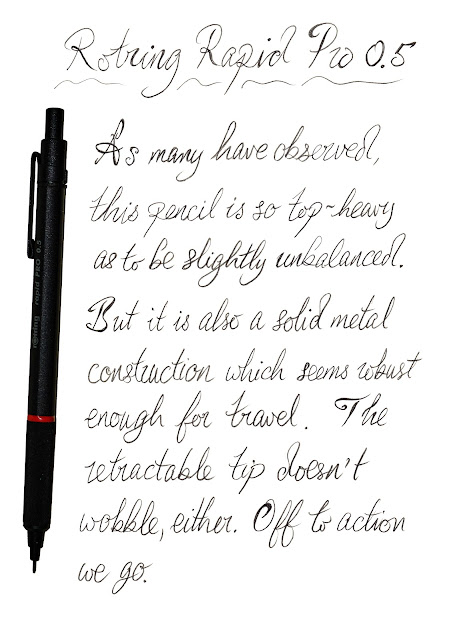 Rotring Rapid Pro 0.5
As many have observed,
this pencil is so top-heavy
as to be slightly unbalanced.
But it is also a solid metal
construction which seems robust
enough for travel. The
retractable tip doesn't
wobble, either. Off to action
we go.
rotring rapid PRO 0.5